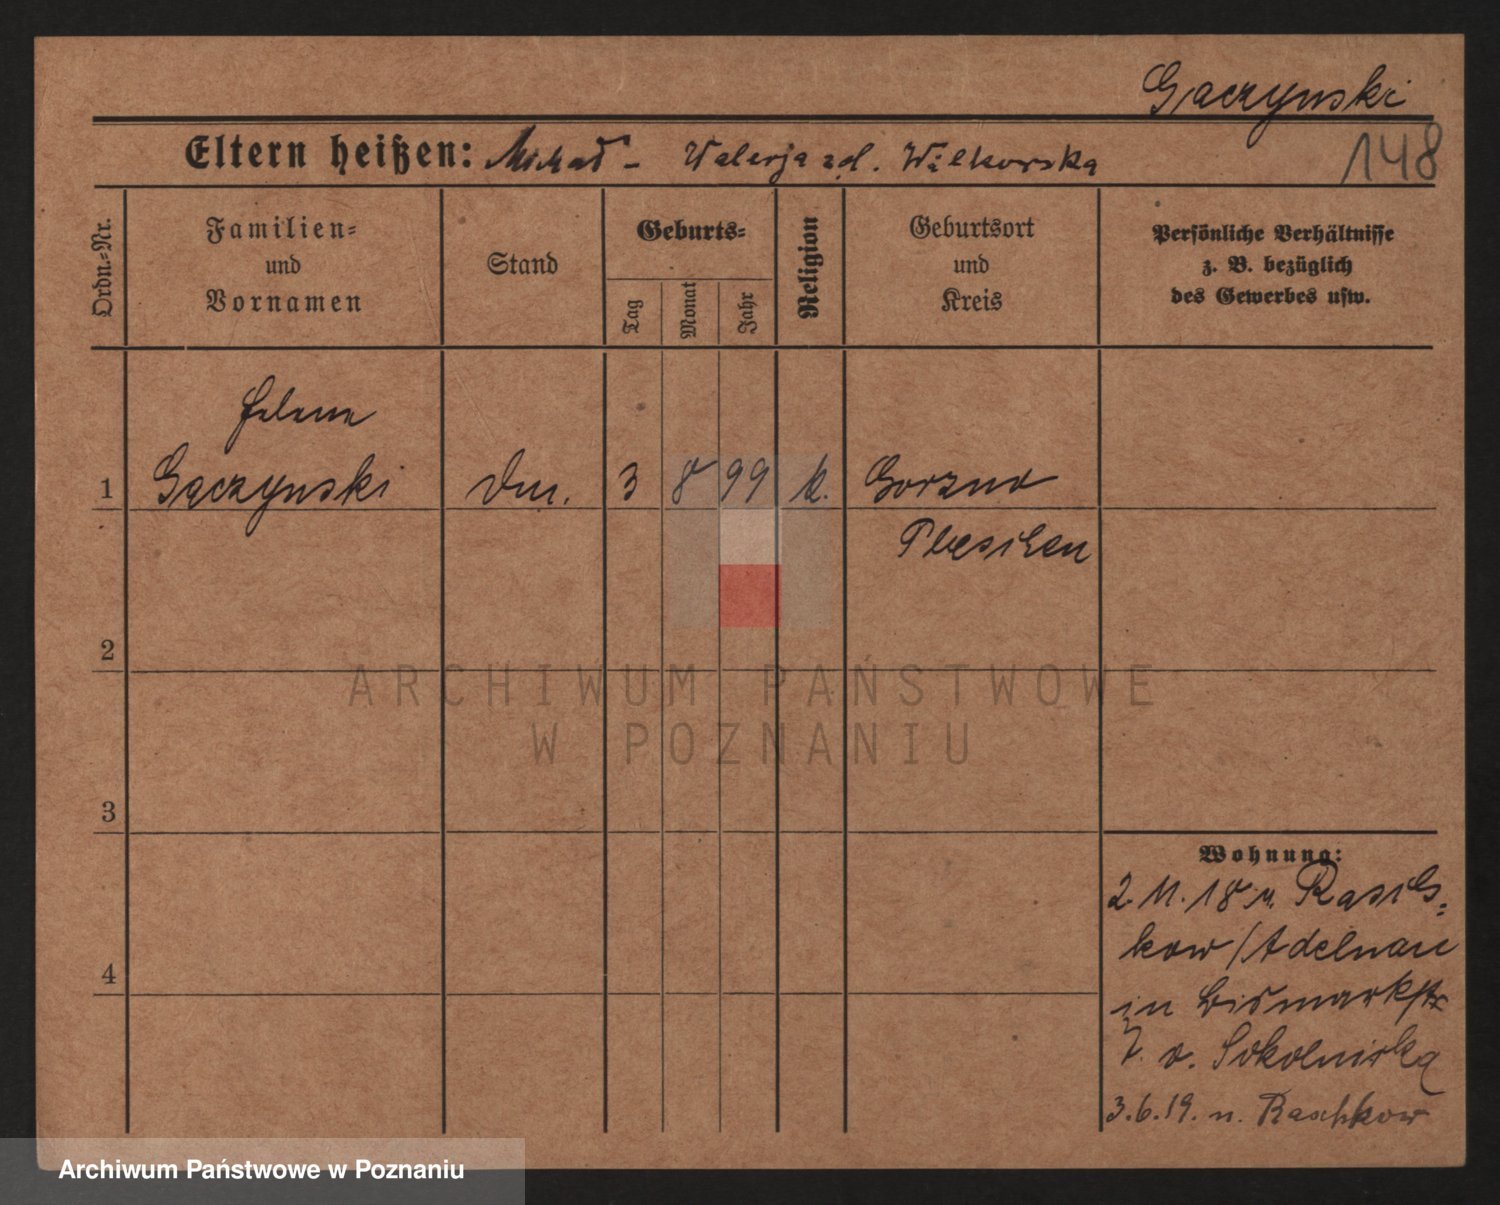 Gączynski
148
Eltern heißen: Michał - Walerja zd. Wilkowska
Ordn.-Nr.
Familien-
und
Vornamen
Stand
Geburts-
Tag
Monat
Jahr
Religion
Geburtsort
und
Kreis
Persönliche Verhältnisse
z. B. bezüglich
des Gewerbes usw.
Helene
1 Gączynski 3 8 99 k. Gorzno
Pleschen
2
3
4
Wohnung:
2.11.18 Rasch-
kow/Adelnau
in Bismarkstr
7. v. Sokolniska
3.6.19. n. Raschkow
ARCHIWUM PAŃSTWOWE
W POZNANIU
Archiwum Państwowe w Poznaniu